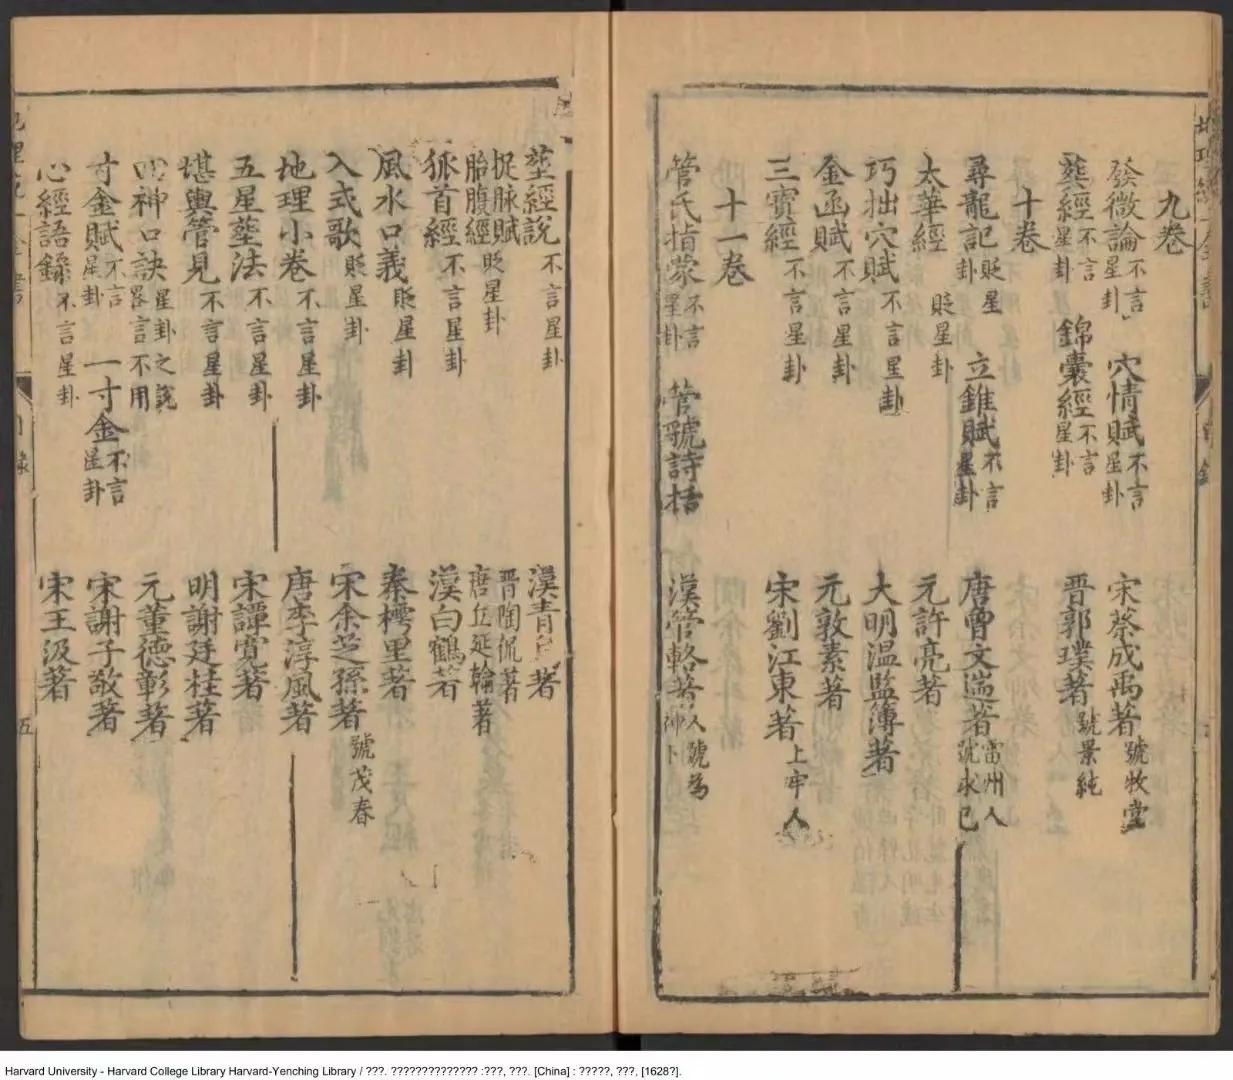 九卷
發微論不言星卦 穴情賦不言星卦 宋蔡成禹著號牧堂
葬經不言星卦 錦囊經不言星卦 晋郭璞著號景純
十卷
尋龍記貶星卦 立錐賦不言星卦 唐曾文遄著雷州人號求已
太華經貶星卦 元許亮著
巧拙穴賦不言星卦 大明温監簿著
金函賦不言星卦 元敦素著
三寶經不言星卦 宋劉江東著上牢人
十一卷
管氏指蒙不言星卦 管號詩括 漢管輅著人號為神卜
塟經說不言星卦 漢青烏著
捉脉賦 晋陶侃著
胎腹經貶星卦 唐丘延翰著
狐首經不言星卦 漢白鶴著
風水口義貶星卦 秦樗里著
入式歌貶星卦 宋余芝孫著號茂春
地理小卷不言星卦 唐李淳風著
五星塟法不言星卦 宋譚寬著
堪輿管見不言星卦 明謝廷桂著
四神口訣星卦之說畧言不用 元董德彰著
寸金賦不言星卦 一寸金不言星卦 宋謝子敬著
心經語錄不言星卦 宋王汲著
目錄
五
Harvard University - Harvard College Library Harvard-Yenching Library / ???. ?????????????? :???, ???. [China] : ?????, ???, [1628?].